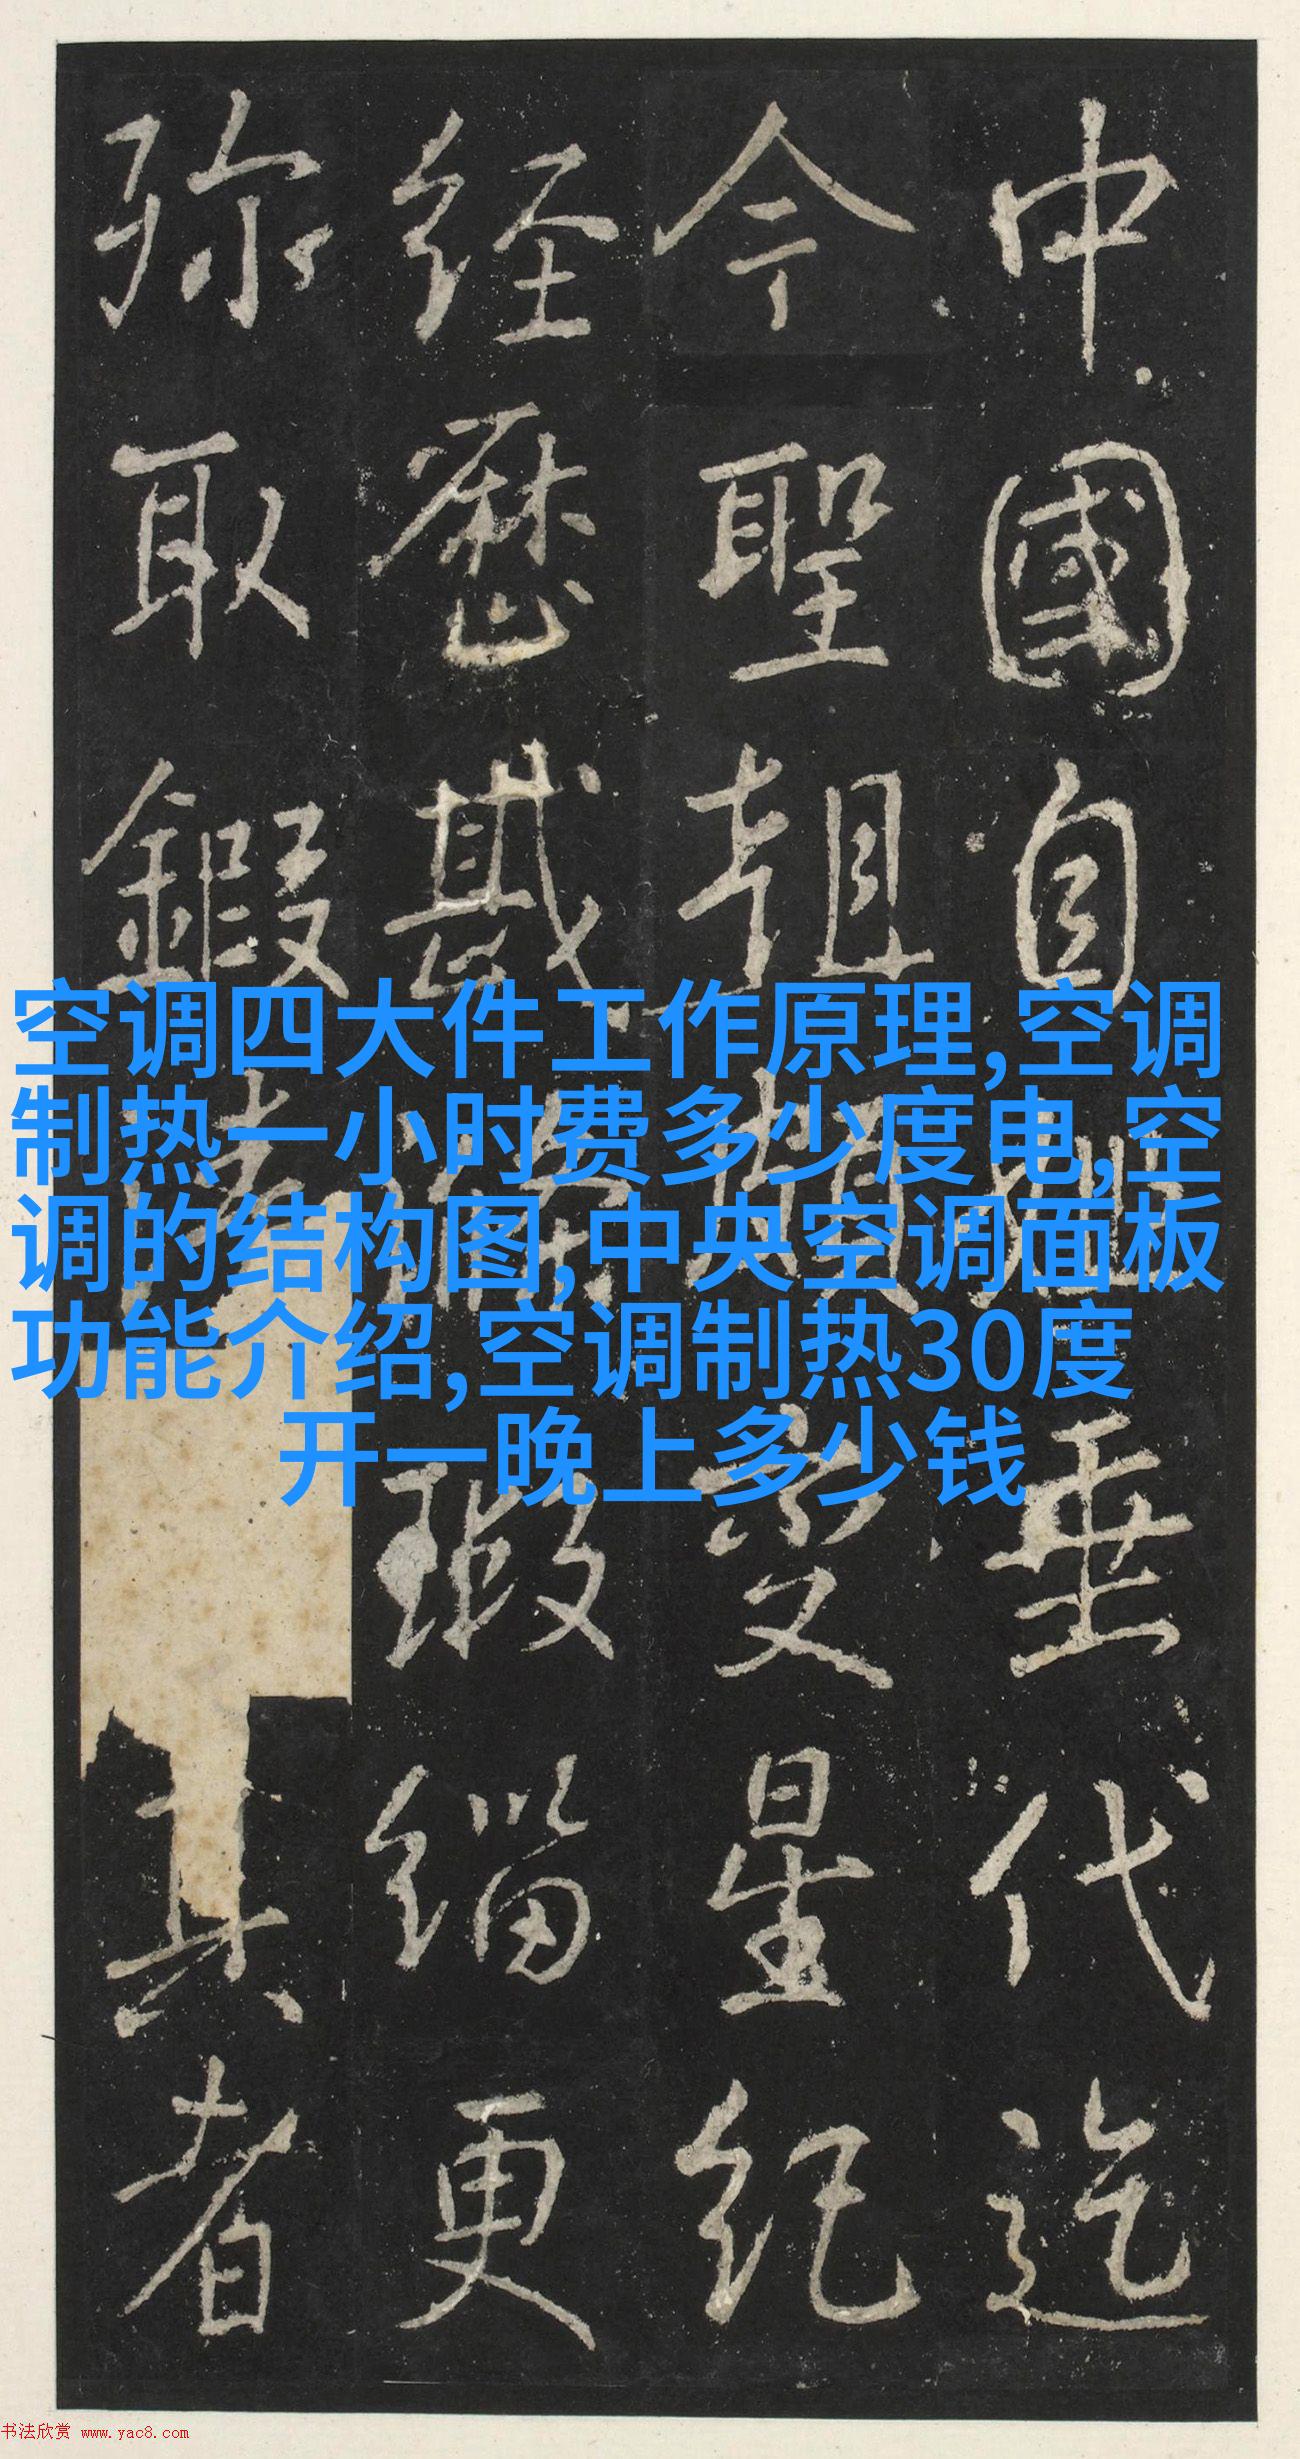 中國自垂代迄
今聖朝星紀
经歷瑕緇更
弥取鍜者
空调四大件工作原理,空调
制热一小时费多少度电,空
调的结构图,中央空调面板
功能介绍,空调制热30度
开一晚上多少钱
书法欣赏 www.yac8.com